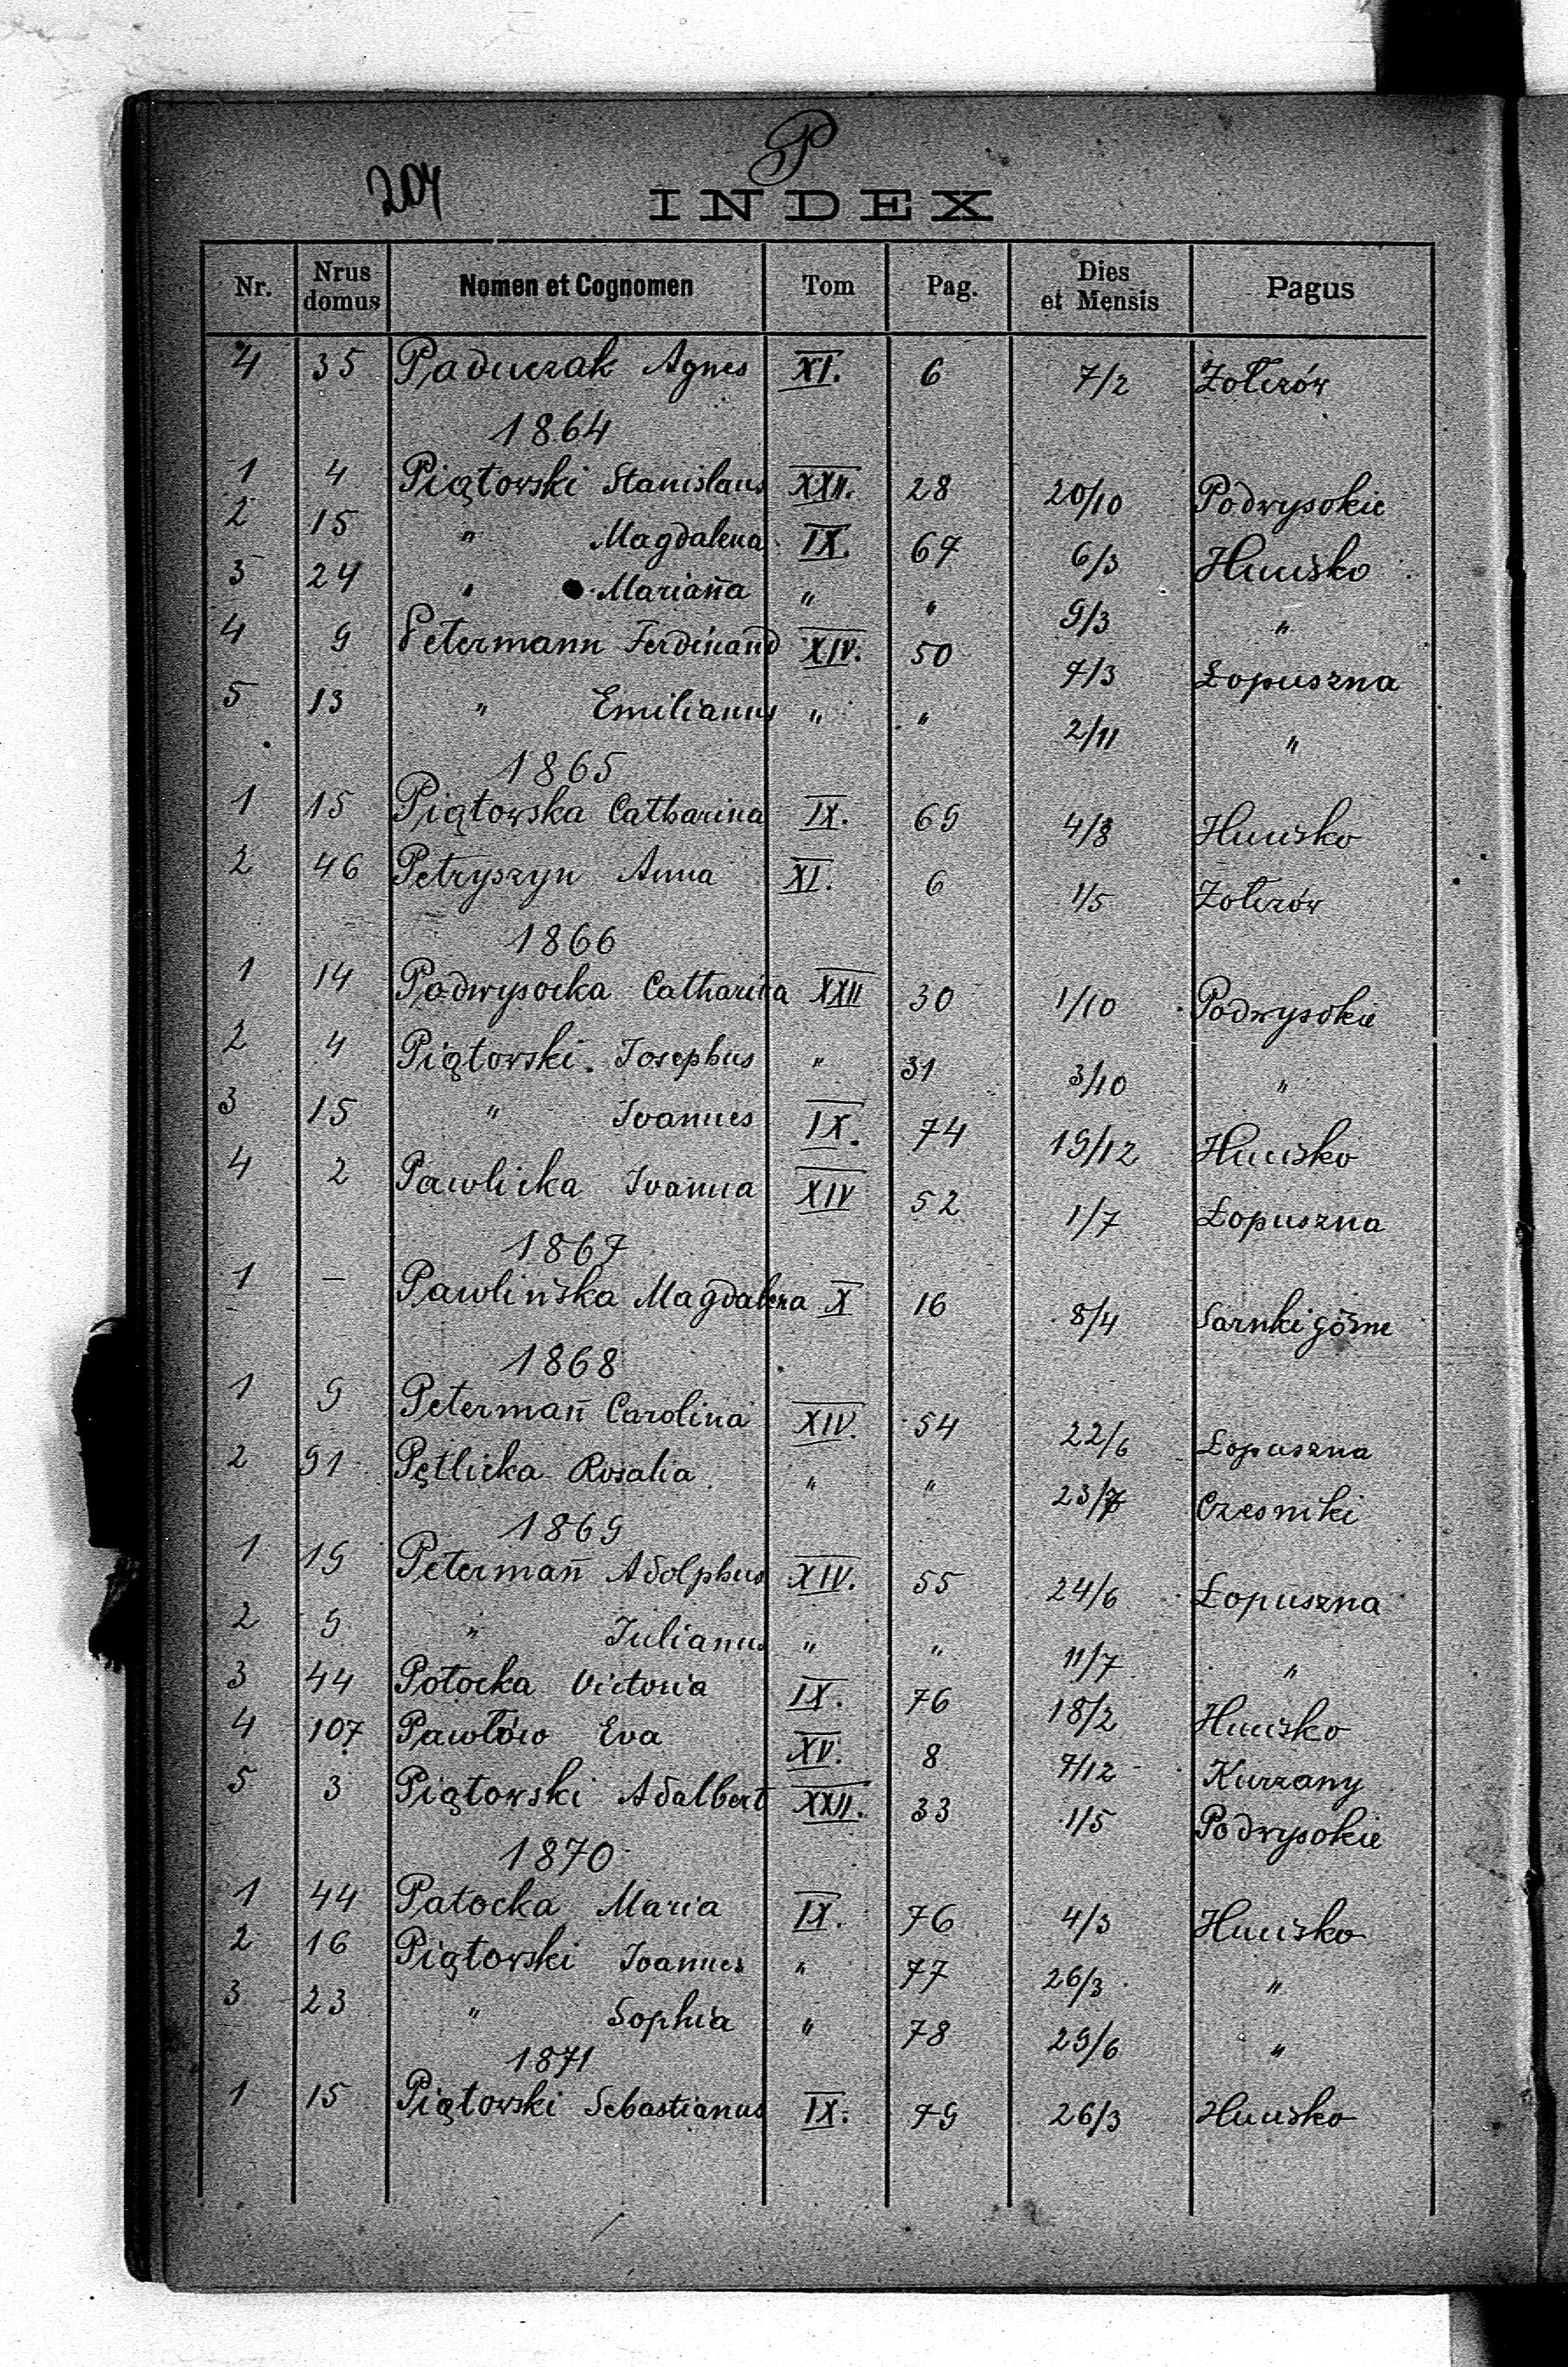 P
204
INDEX
Nr. Nrus domus Nomen et Cognomen Tom Pag. Dies et Mensis Pagus
4 35 Paduczak Agnes XI. 6 7/2 Żołczów
1864
1 4 Piątowski Stanislaus XXII. 28 20/10 Podwysokie
2 15 " Magdalena IX. 67 6/3 Hucisko
3 24 " Mariana " " 9/3 "
4 9 Petermann Ferdinand XIV. 50 7/3 Łopuszna
5 13 " Emilianus " " 2/11 "
1865
1 15 Piątowska Catharina IX. 69 4/8 Hucisko
2 46 Petryszyn Anna XI. 6 1/5 Żołczów
1866
1 14 Podwysocka Catharina XXII 30 1/10 Podwysokie
2 4 Piątowski Josephus " 31 3/10 "
3 15 " Joannes IX. 74 19/12 Hucisko
4 2 Pawlicka Joanna XIV 52 1/7 Łopuszna
1867
1 – Pawlińska Magdalena X 16 8/4 Sarnki górne
1868
1 9 Petermañ Carolina XIV. 54 22/6 Łopuszna
2 91 Pętlicka Rosalia " " 23/7 Czesniki
1869
1 19 Petermañ Adolphus XIV. 55 24/6 Łopuszna
2 9 " Julianus " " 11/7 "
3 44 Potocka Victoria IX. 76 18/2 Hucisko
4 107 Pawłów Eva XV. 8 7/12 Kurzany
5 3 Piątowski Adalbert XXII. 33 1/5 Podwysokie
1870
1 44 Patocka Maria IX. 76 4/3 Hucisko
2 16 Piątowski Joannes " 77 26/3 "
3 23 " Sophia " 78 29/6 "
1871
1 15 Piątowski Sebastianus IX. 79 26/3 Hucisko